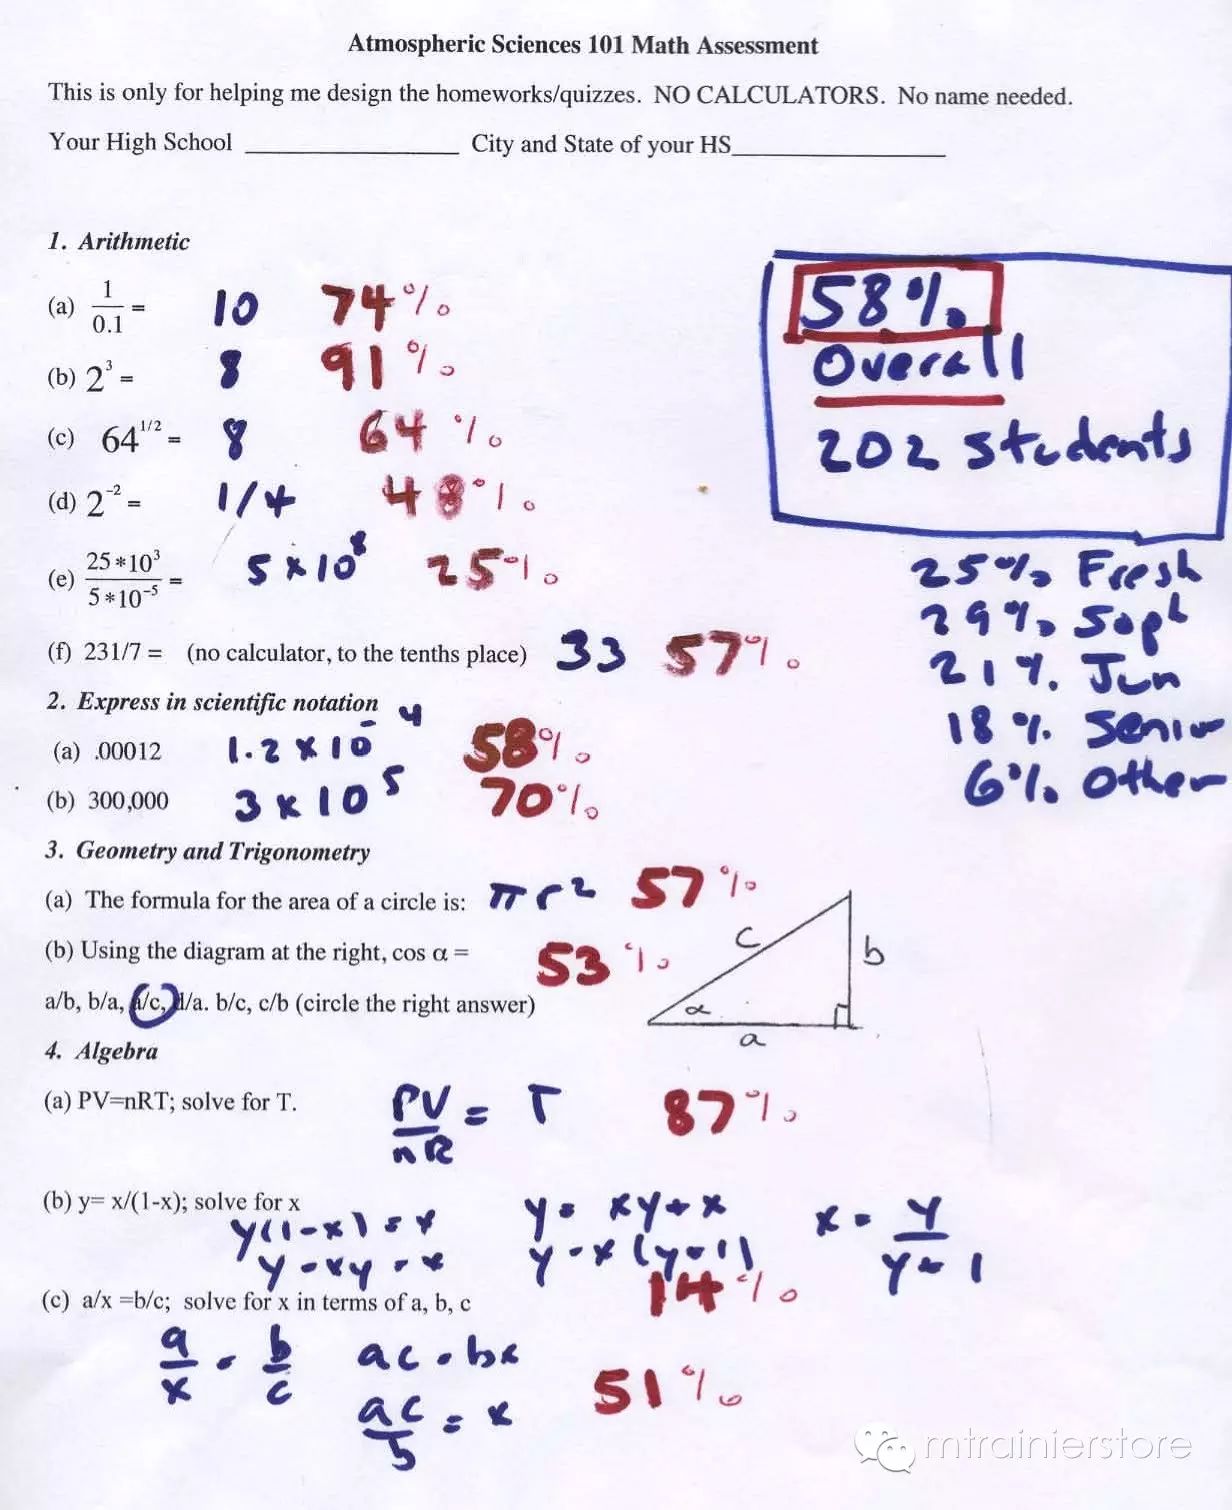 Atmospheric Sciences 101 Math Assessment
This is only for helping me design the homeworks/quizzes. NO CALCULATORS. No name needed.
Your High School ____________ City and State of your HS____________
1. Arithmetic
(a) 1/0.1 = 10 74%
(b) 2³ = 8 91%
(c) 64^1/2 = 8 64%
(d) 2^-2 = 1/4 48%
(e) 25*10³/5*10^-5 = 5 x 10^8 25%
(f) 231/7 = (no calculator, to the tenths place) 33 57%
58%
Overall
202 students
25% Fresh
29% Soph
21% Jun
18% Senior
6% Other
2. Express in scientific notation
(a) .00012 1.2 x 10^-4 58%
(b) 300,000 3 x 10^5 70%
3. Geometry and Trigonometry
(a) The formula for the area of a circle is: πr² 57%
(b) Using the diagram at the right, cos α = 53%
a/b, b/a, a/c, d/a. b/c, c/b (circle the right answer)
c
b
α
a
4. Algebra
(a) PV=nRT; solve for T. PV/nR = T 87%
(b) y= x/(1-x); solve for x
y(1-x) = x y = xy + x x = y/y+1
y - xy = x y = x(y+1)
14%
(c) a/x =b/c; solve for x in terms of a, b, c
a/x = b/c ac = bx
ac/b = x 51%
mtrainierstore